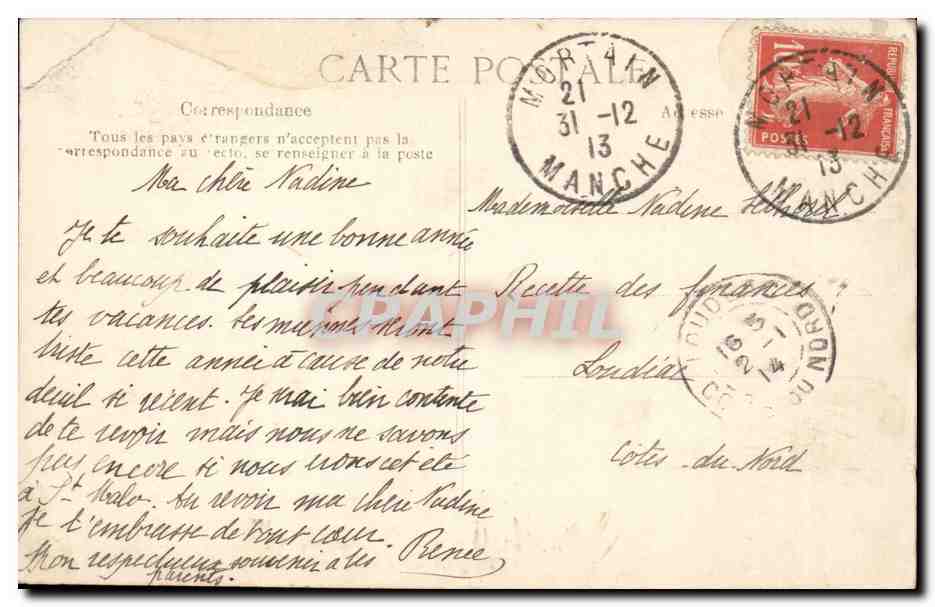 CARTE POSTALE
Correspondance
Adresse
Tous les pays étrangers n'acceptent pas la
correspondance au recto, se renseigner à la poste
MORTAIN
21
31 -12
13
MANCHE
RÉPUBLIQUE FRANÇAISE
10
POSTES
MORTAIN
21
31 -12
13
MANCHE
Ma chère Nadine
Je te souhaite une bonne année
et beaucoup de plaisir pendant
tes vacances. Les miennes seront
triste cette année à cause de notre
deuil si récent. Je serai bien contente
de te revoir mais nous ne savons
pas encore si nous irons cet été
à St Malo. Au revoir ma chère Nadine
je t'embrasse de tout cœur
Renée
Mon respectueux souvenir à tes
parents.
Mademoiselle Nadine
Recette des finances
Loudéac
Côtes-du-Nord
LOUD
16
2 - 1
14
DU NORD
CPAPHIL